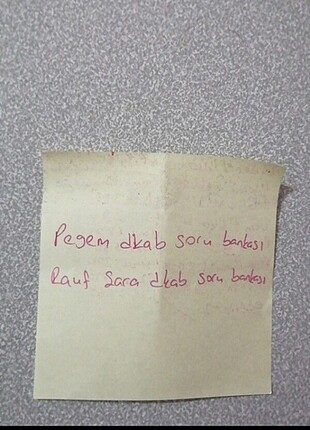 Pegem dkab soru bankası
Rauf Sara dkab soru bankası